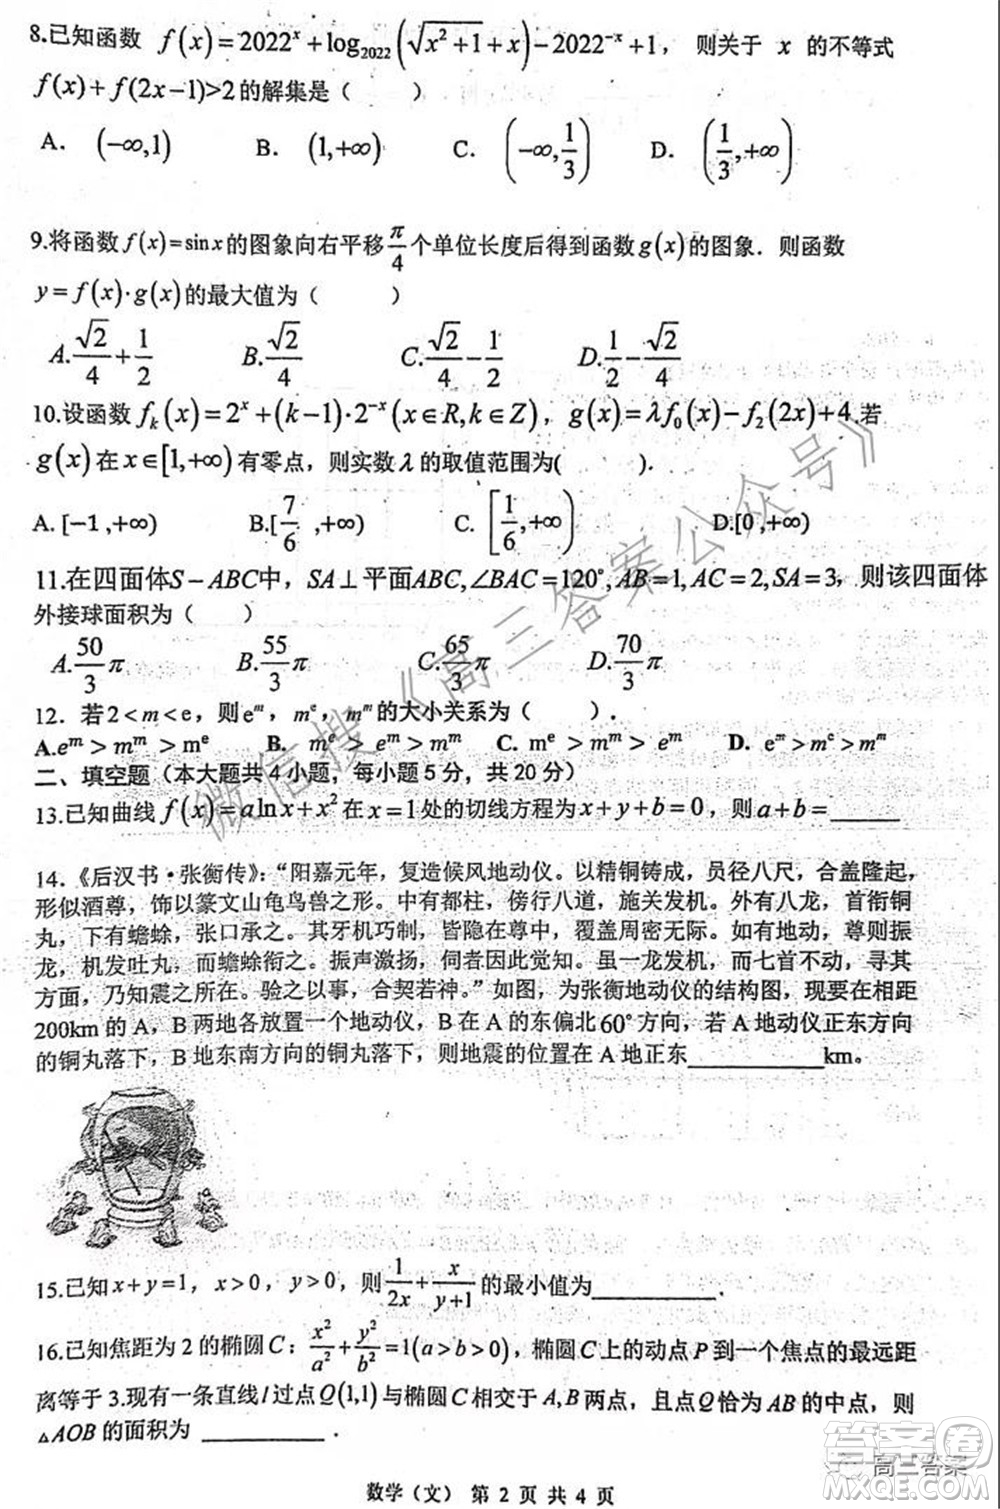 8.已知函数 f(x)=2022^x+log_2022(√(x²+1)+x)-2022^(-x)+1， 则关于 x 的不等式
f(x)+f(2x-1)>2的解集是（  ）
A. (-∞,1)  B. (1,+∞)  C. (-∞,1/3)  D. (1/3,+∞)
9.将函数f(x)=sinx的图象向右平移π/4个单位长度后得到函数g(x)的图象．则函数
y=f(x)·g(x)的最大值为（  ）
A.√2/4+1/2  B.√2/4  C.√2/4-1/2  D.1/2-√2/4
10.设函数f_k(x)=2^x+(k-1)·2^(-x)(x∈R,k∈Z)，g(x)=λf_0(x)-f_2(2x)+4.若
g(x)在x∈[1,+∞)有零点，则实数λ的取值范围为(  ).
A. [-1,+∞)  B.[7/6 ,+∞)  C. [1/6,+∞)  D.[0,+∞)
11.在四面体S-ABC中，SA⊥平面ABC,∠BAC=120°,AB=1,AC=2,SA=3，则该四面体
外接球面积为（  ）
A.50/3 π  B.55/3 π  C.65/3 π  D.70/3 π
12．若2<m<e，则e^m，m^e，m^m的大小关系为（  ）．
A.e^m>m^m>m^e  B. m^e>e^m>m^m  C. m^e>m^m>e^m  D. e^m>m^e>m^m
二、填空题（本大题共4小题，每小题5分，共20分）
13.已知曲线f(x)=alnx+x²在x=1处的切线方程为x+y+b=0，则a+b=______
14．《后汉书·张衡传》：“阳嘉元年，复造候风地动仪。以精铜铸成，员径八尺，合盖隆起，
形似酒尊，饰以篆文山龟鸟兽之形。中有都柱，傍行八道，施关发机。外有八龙，首衔铜
丸，下有蟾蜍，张口承之。其牙机巧制，皆隐在尊中，覆盖周密无际。如有地动，尊则振
龙，机发吐丸，而蟾蜍衔之。振声激扬，伺者因此觉知。虽一龙发机，而七首不动，寻其
方面，乃知震之所在。验之以事，合契若神。”如图，为张衡地动仪的结构图，现要在相距
200km的A，B两地各放置一个地动仪，B在A的东偏北60°方向，若A地动仪正东方向
的铜丸落下，B地东南方向的铜丸落下，则地震的位置在A地正东__________km。
15.已知x+y=1，x>0，y>0，则1/(2x)+x/(y+1)的最小值为__________．
16.已知焦距为2的椭圆C：x²/a²+y²/b²=1(a>b>0)，椭圆C上的动点P到一个焦点的最远距
离等于3.现有一条直线l过点Q(1,1)与椭圆C相交于A,B两点，且点Q恰为AB的中点，则
△AOB的面积为 ________．
数学（文） 第 2 页 共 4 页
微信搜《高三答案公众号》
答案圈
高三答案